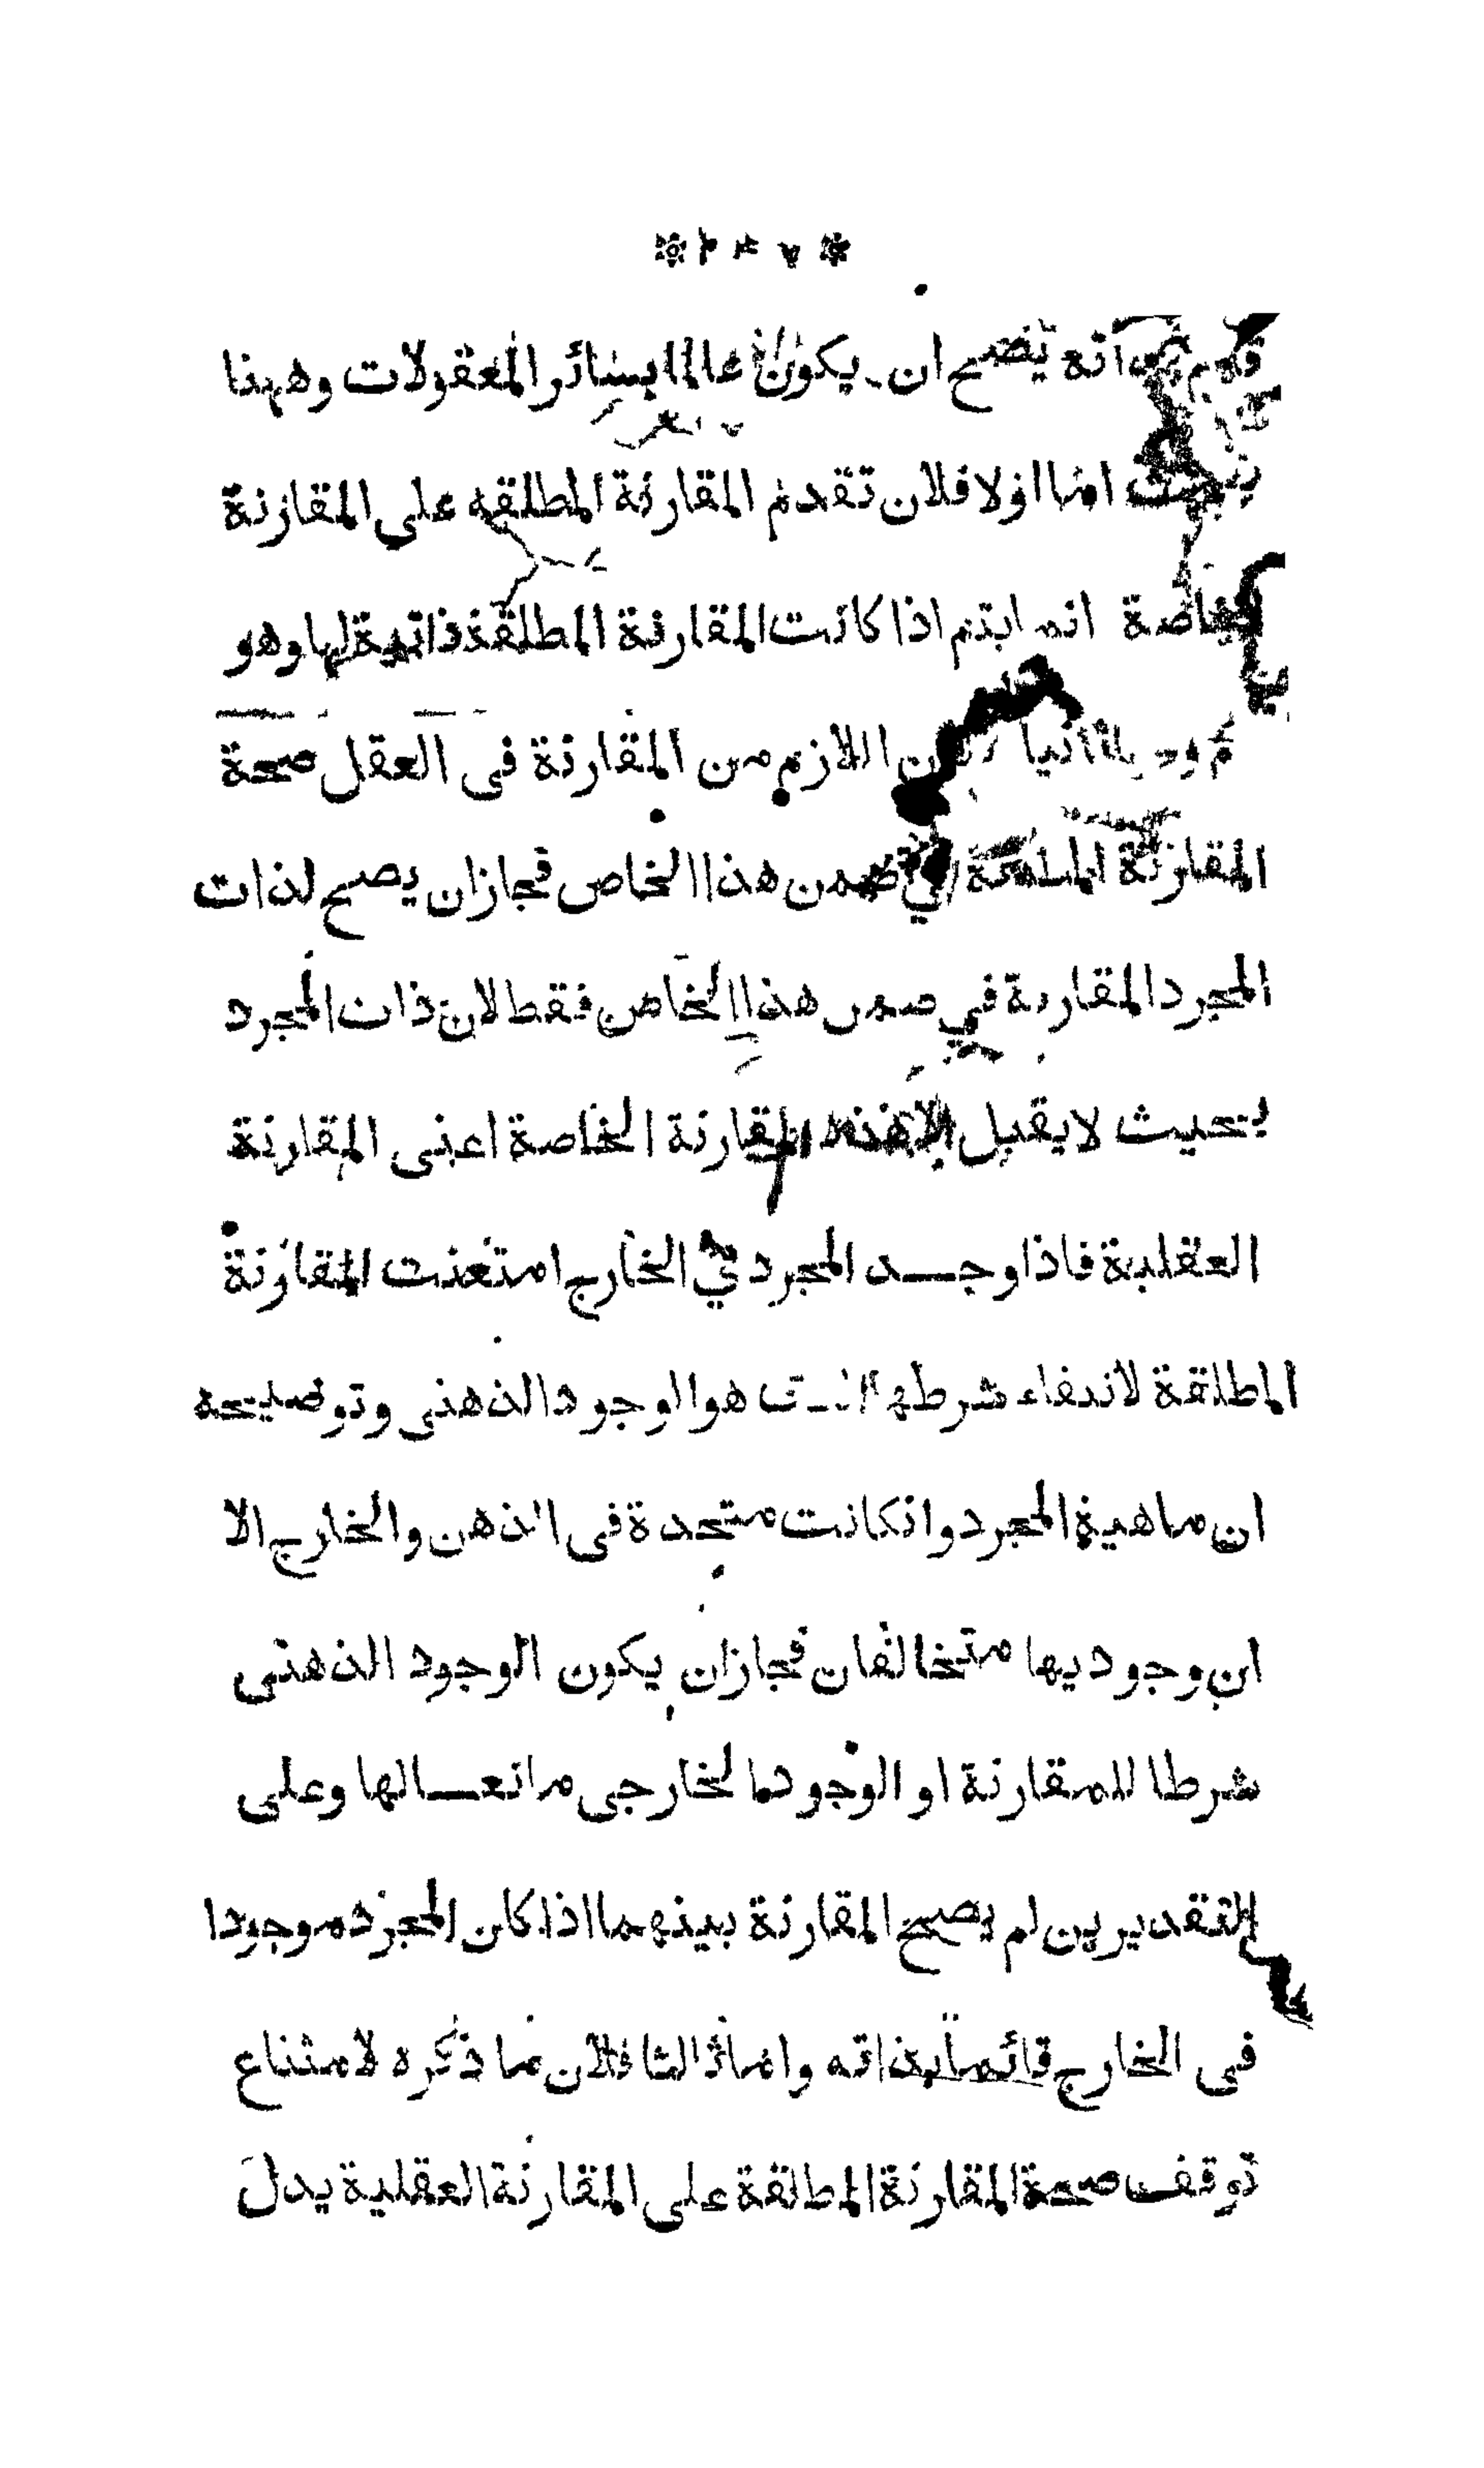 انه يصح ان يكون عالما بسائر المعقولات وههنا
بحث اما اولا فلان تقدم المقارنة المطلقه على المقارنة
الخاصة انما يتم اذا كانت المقارنة المطلقة ذاتية لها وهو
ثانيا اللازم من المقارنة فى العقل صحة
المقارنة المطلقة في ضمن هذا الخاص فجازان يصح لذات
المجرد المقارنة في ضمن هذا الخاص فقط لان ذات المجرد
بحيث لا يقبل الا هذه المقارنة الخاصة اعنى المقارنة
العقلية فاذا وجد المجرد في الخارج امتنعت المقارنة
المطلقة لانتفاء شرطها هو الوجود الذهنى وتوضيحه
ان ماهية المجرد وانكانت متحدة فى الذهن والخارج الا
ان وجوديها متخالفان فجازان يكون الوجود الذهنى
شرطا للمقارنة او الوجود الخارجى مانعا لها وعلى
التقديرين لم يصح المقارنة بينهما اذا كان المجرد موجودا
فى الخارج قائما بذاته واما ثالثا فلان ما ذكره لامتناع
توقف صحة المقارنة المطلقة على المقارنة العقلية يدل